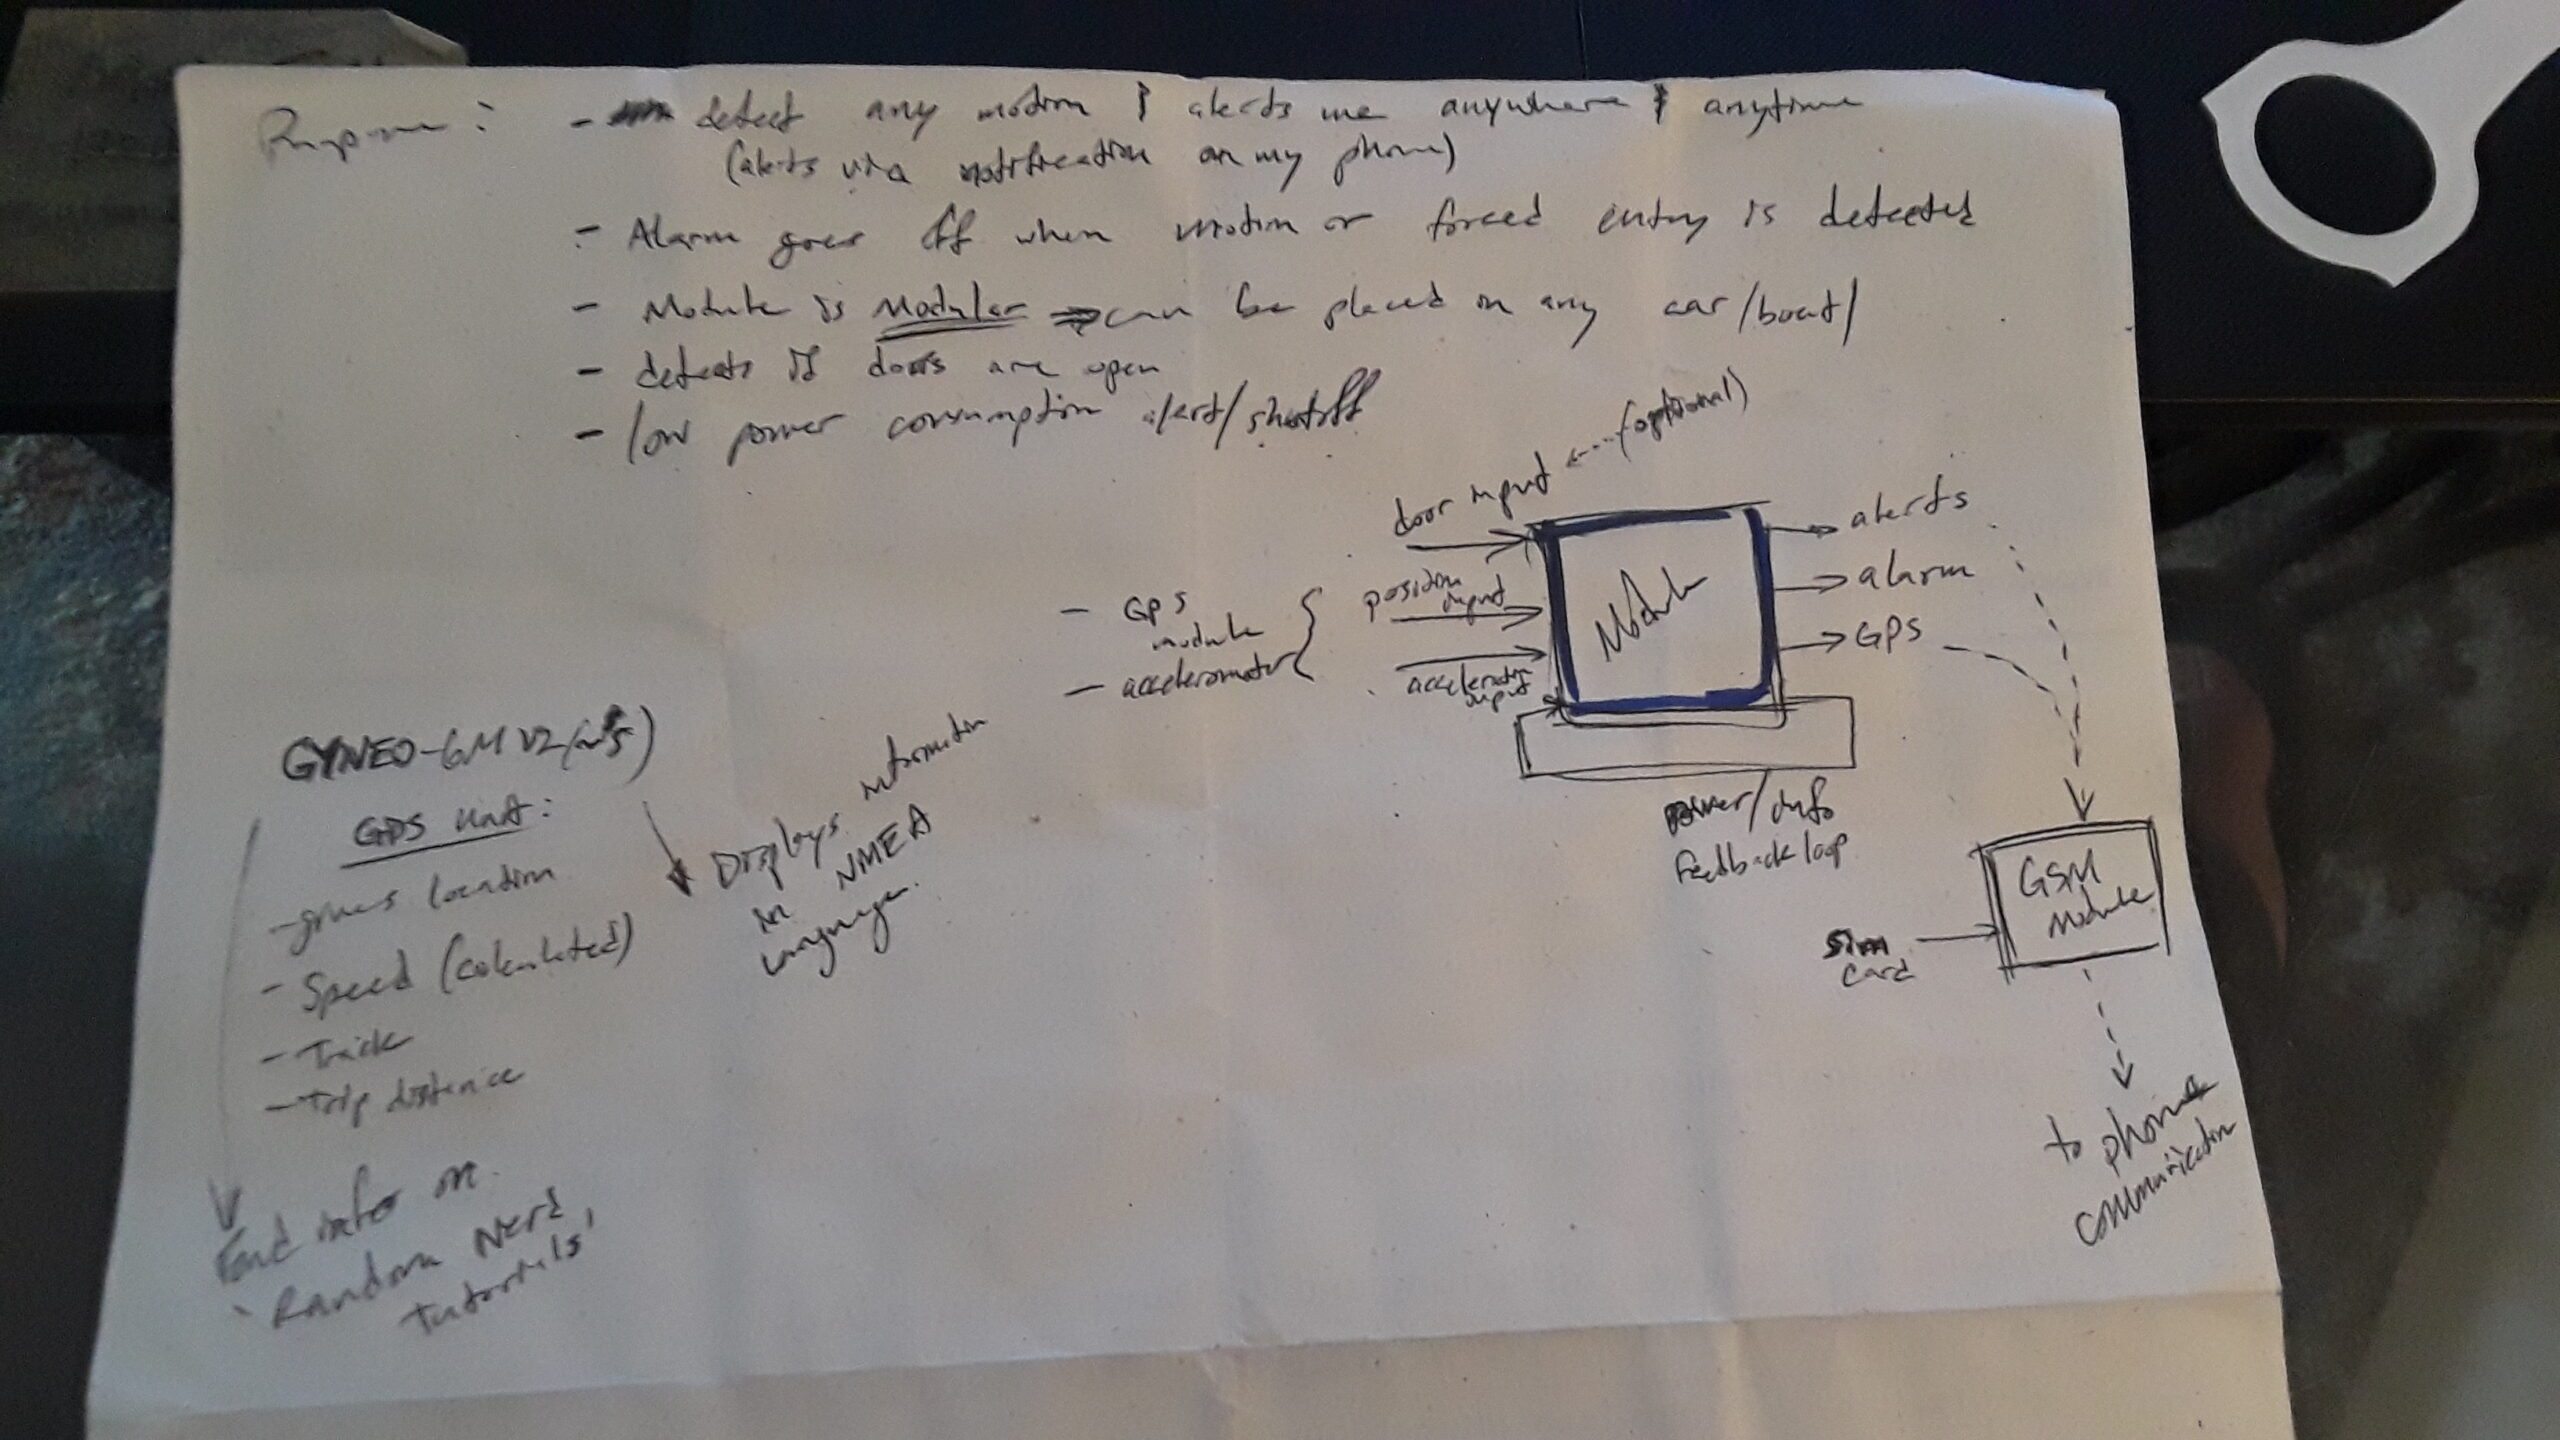 Purpose : - detect any motion & alerts me anywhere & anytime
(alerts via notification on my phone)
- Alarm goes off when motion or forced entry is detected
- Module is Modular can be placed in any car/boat/
- detects if doors are open
- low power consumption alert/shutoff
door input <--- (optional)
position input
acceleration input
- GPS module
- accelerometer
Module
alerts
alarm
GPS
power/info
feedback loop
GSM
Module
sim
card
to phone
communication
GYNEO-6M V2
GPS Unit:
- gives location
- Speed (calculated)
- Track
- Trip distance
Displays information
in NMEA
language.
Find info on
'Random Nerd
Tutorials'